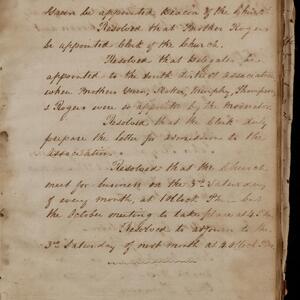 be appointed Deacon of the Church.
Resolved that Brother Rogers
be appointed Clerk of the Church.
Resolved that Delegates be
appointed to the South District association
when Brothers Slater, Murphy, Thompson,
& Rogers were so appointed by the moderator.
Resolved, that the Clerk duly
prepare the letter for admission to the
association.
Resolved that the Church
meet for business on the 3rd Saturday
of every month, at 1 Oclock P.M. but
the October meeting to take place at 4
Resolved to adjourn to the
3rd Saturday of next month at 4 o'Clock P.M.